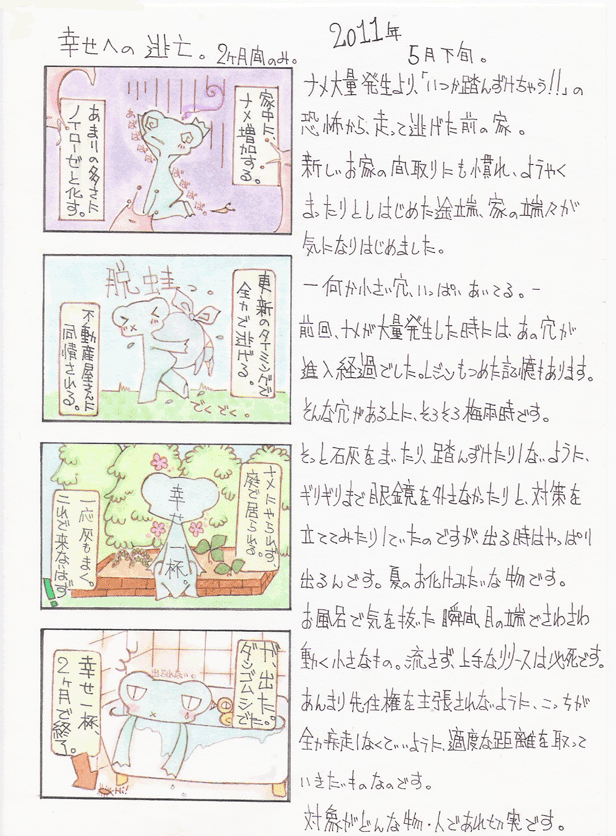 幸せへの逃亡。2ヶ月間のみ。
家中に、
ナメ増加する。
あまりの多さに
ノイローゼと化す。
脱蛙
更新のタイミングで
全力で逃げる。
不動産屋さんに
同情される。
てくてく。
ナメにやられず、
庭で居られる。
幸せ一杯。
一応灰もまく。
これで来ないはず
!
が、出た。
ダンゴムシでた。
出られない。
幸せ一杯
2ヶ月で終了。
Hi!
2011年
5月下旬。
ナメ大量発生より、「いつか踏んずけちゃう!!」の
恐怖から、走って逃げた前の家。
新しいお家の間取りにも慣れ、ようやく
まったりとしはじめた途端、家の端々が
気になりはじめました。
ー何か小さい穴、いっぱいあいてる。ー
前回、ナメが大量発生した時には、あの穴が
進入経過でした。レジンもつめた記憶もあります。
そんな穴がある上に、そろそろ梅雨時です。
そっと石灰をまいたり、踏んずけたりしないように、
ギリギリまで眼鏡を外さなかったりと、対策を
立ててみたりしていたのですが、出る時はやっぱり
出るんです。夏のお化けみたいな物です。
お風呂で気を抜いた瞬間、目の端でさわさわ
動く小さなもの。流さず、上手なリリースは必死です。
あんまり先住権を主張されないように、こっちが
全力疾走しなくていいように、適度な距離を取って
いきたいものなのです。
対象がどんな物・人であれ切実です。